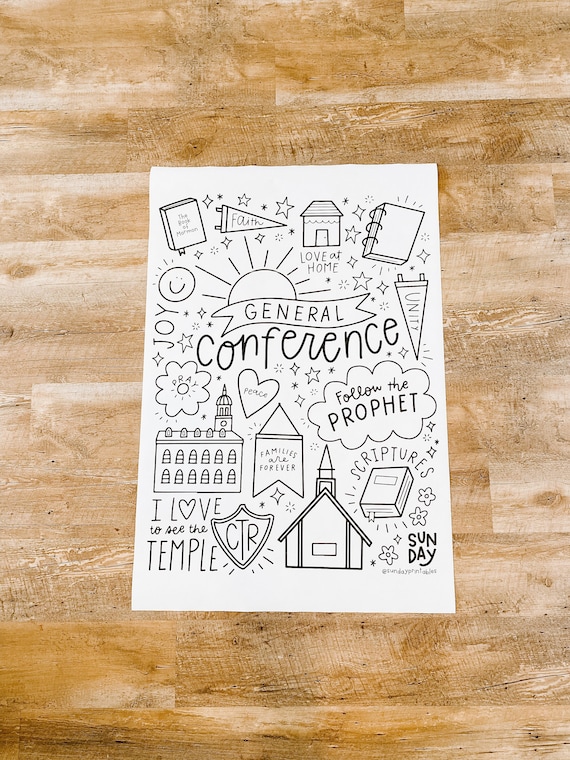 The
Book
of
Mormon
Faith
LOVE at
HOME
JOY
GENERAL
Conference
UNITY
PRAY
Peace
Follow the
PROPHET
FAMILIES
are
FOREVER
SCRIPTURES
I LOVE
to see the
TEMPLE
CTR
SUN
DAY
@sundayprintables